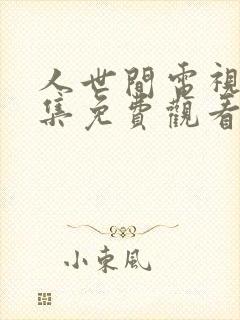 人世間電視
集免費觀看
小東風